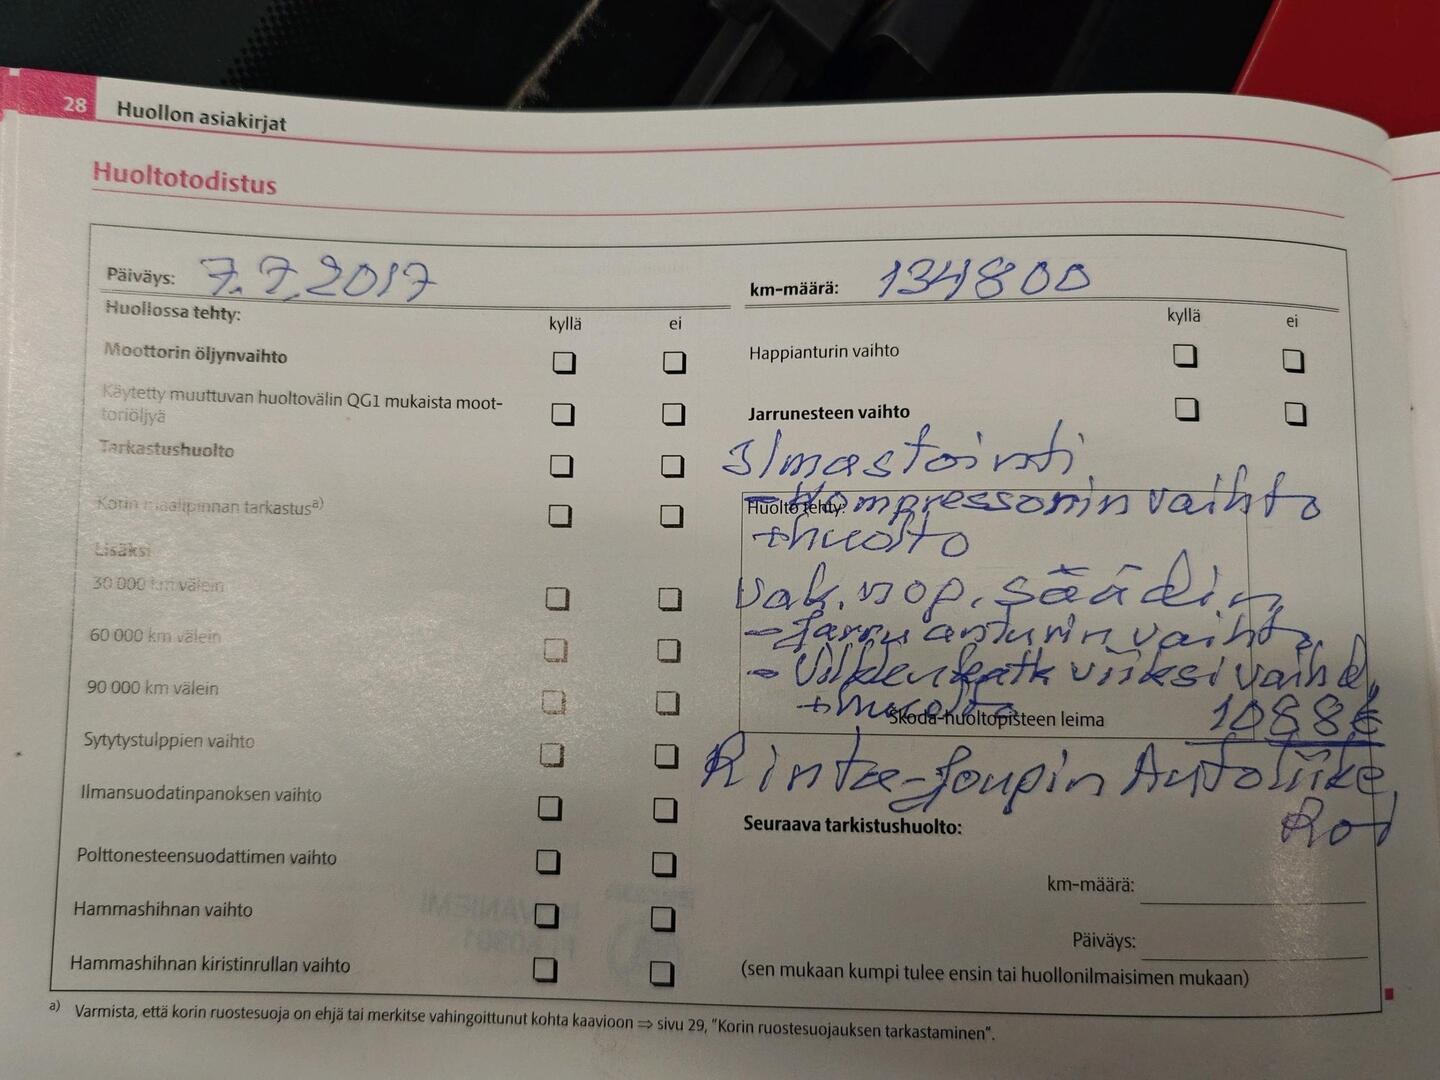 28 Huollon asiakirjat
Huoltotodistus
Päiväys: 7.7.2017
km-määrä: 134800
Huollossa tehty:
kyllä ei
kyllä ei
Moottorin öljynvaihto
Käytetty muuttuvan huoltovälin QG1 mukaista moot-
toriöljyä
Tarkastushuolto
Korin maalipinnan tarkastus a)
Lisäksi
30 000 km välein
60 000 km välein
90 000 km välein
Sytytystulppien vaihto
Ilmansuodatinpanoksen vaihto
Polttonesteensuodattimen vaihto
Hammashihnan vaihto
Hammashihnan kiristinrullan vaihto
Happianturin vaihto
Jarrunesteen vaihto
Ilmastointi
- Kompressorin vaihto
Huolto tehty:
+huolto
Vak.nop.säädin
- Jarru anturin vaihto
- katk viiksi vaihd.
+huolto
Skoda-huoltopisteen leima
1088€
Rinta-Joupin Autoliike,
Seuraava tarkistushuolto:
km-määrä:
Päiväys:
(sen mukaan kumpi tulee ensin tai huollonilmaisimen mukaan)
a) Varmista, että korin ruostesuoja on ehjä tai merkitse vahingoittunut kohta kaavioon ⇒ sivu 29, "Korin ruostesuojauksen tarkastaminen".